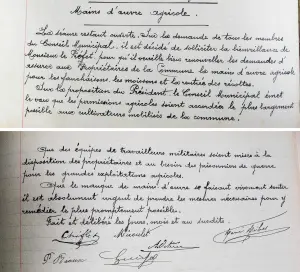 Mains d'œuvre agricole.
La séance restant ouverte, sur la demande de tous les membres
du Conseil Municipal, il est décidé de solliciter la bienveillance de
Monsieur le Préfet, pour qu'il veuille bien renouveler les demandes d'
assurer aux Propriétaires de la Commune, la main d'œuvre agricole
pour les fenaisons, les moissons et les rentrées des récoltes.
Sur la proposition du Président, le Conseil Municipal émet
le vœu que les permissions agricoles soient accordées le plus largement
possible aux cultivateurs mobilisés de la commune.
Que des équipes de travailleurs militaires soient mises à la
disposition des propriétaires et au besoin des prisonniers de guerre
pour les grandes exploitations agricoles.
Que le manque de main d'œuvre se faisant vivement sentir
il est absolument urgent de prendre les mesures nécessaires pour y
remédier le plus promptement possible.
Fait et délibéré les jours, mois et an susdits.
Nicoulet